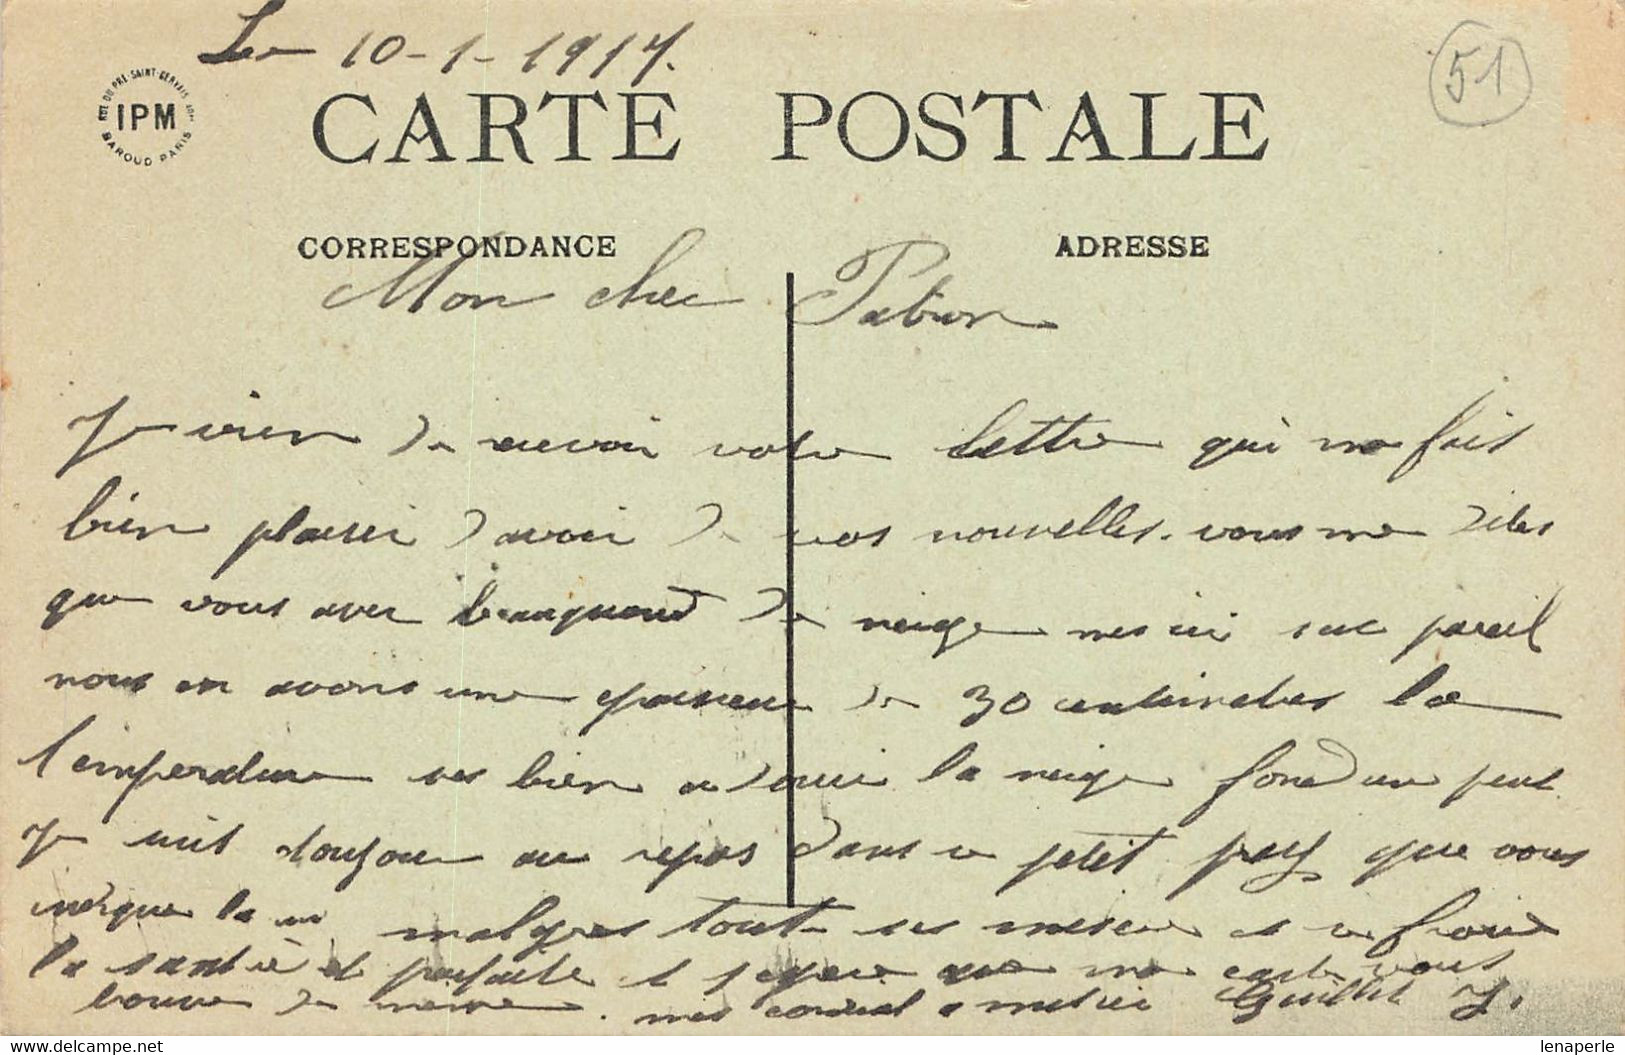 Le 10-1-1917.
51
RUE DU PRÉ SAINT-GERVAIS
IPM
BAROUD PARIS
CARTE POSTALE
CORRESPONDANCE
ADRESSE
Mon cher Patron
Je viens de recevoir votre lettre qui me fait
bien plaisir d'avoir de vos nouvelles. vous me dites
que vous avez beaucoup de neige mes ici set pareil
nous en avons une epaisseur de 30 centimetres la
temperature ses bien adouci la neige fond un peut
Je suis toujour au repos dans ce petit pay que vous
indique la malgres tout ses misere et ce froid
la santé et parfaite et j'espere que ma carte vous
trouve de meme. mes cordial amitier Guillot J.
lenaperle
www.delcampe.net